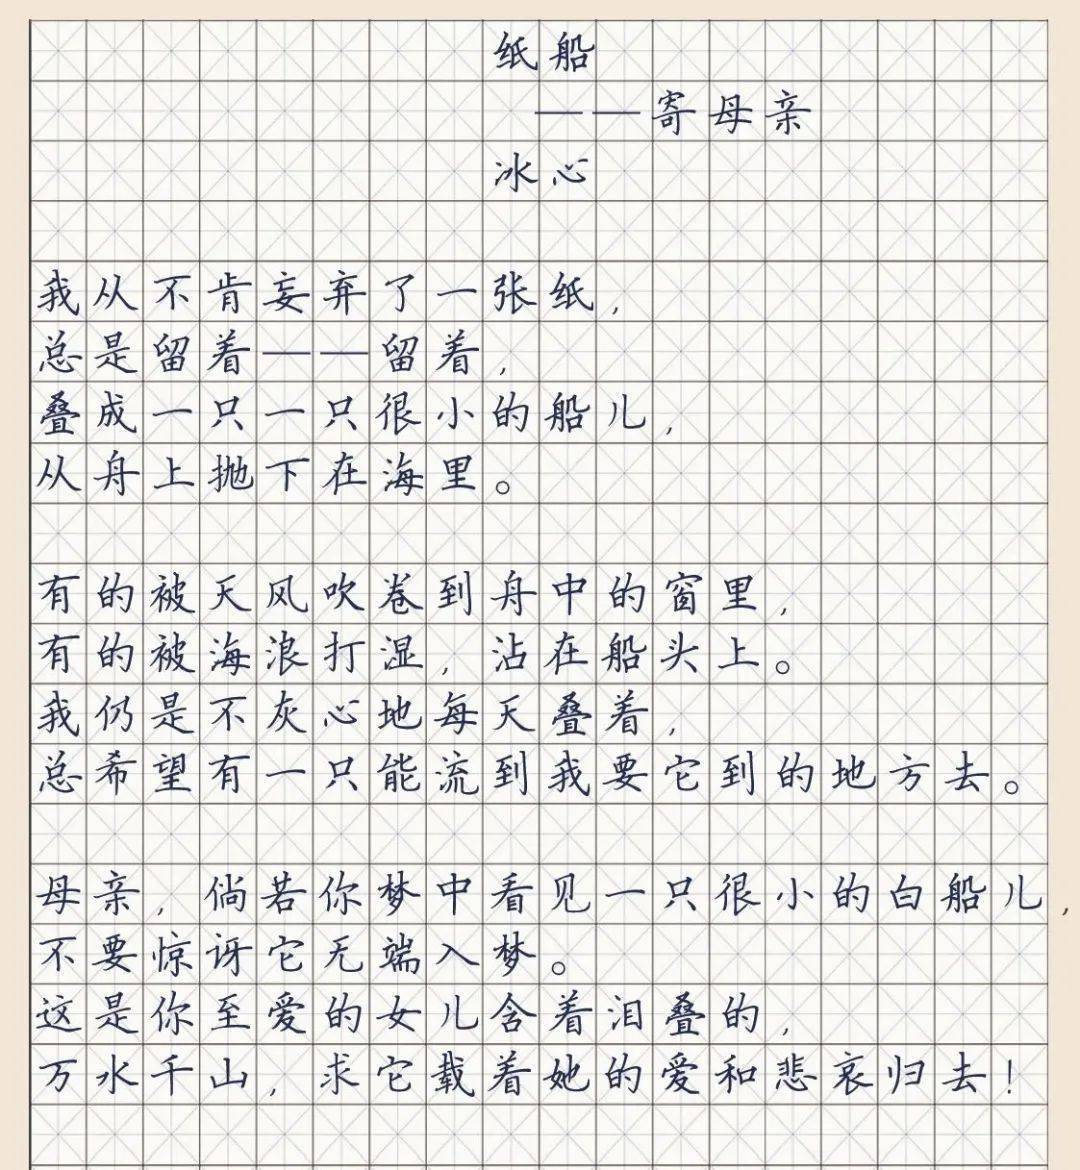 纸船
——寄母亲
冰心
我从不肯妄弃了一张纸，
总是留着——留着，
叠成一只一只很小的船儿，
从舟上抛下在海里。
有的被天风吹卷到舟中的窗里，
有的被海浪打湿，沾在船头上。
我仍是不灰心地每天叠着，
总希望有一只能流到我要它到的地方去。
母亲，倘若你梦中看见一只很小的白船儿，
不要惊讶它无端入梦。
这是你至爱的女儿含着泪叠的，
万水千山，求它载着她的爱和悲哀归去！